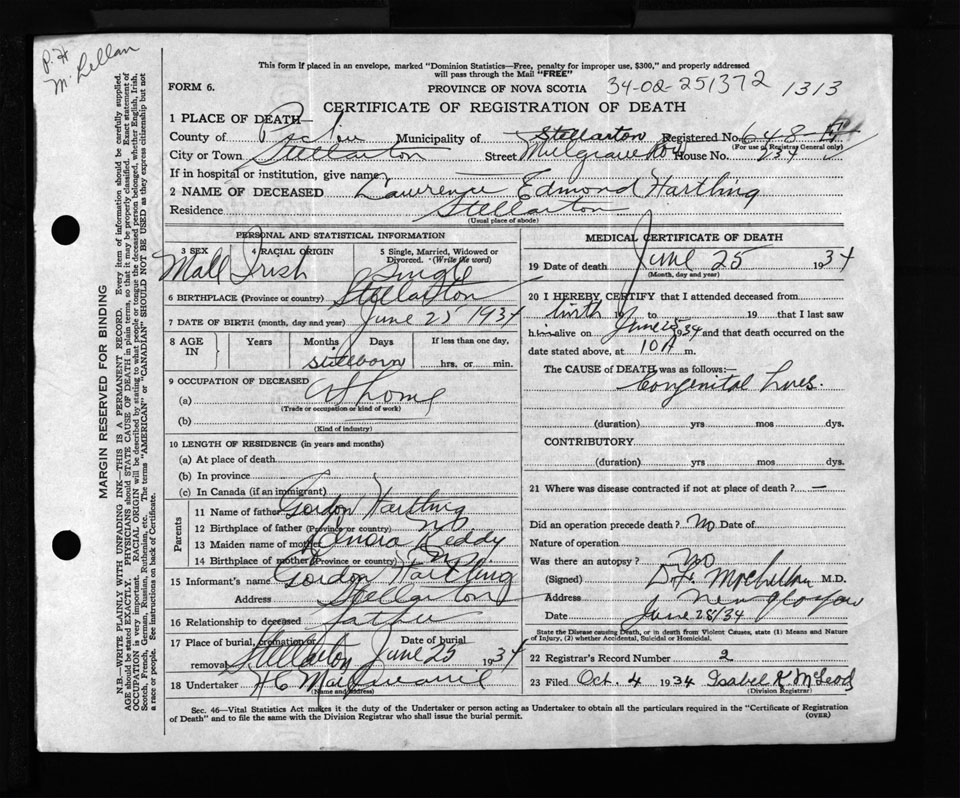 P. H
McLellan
This form if placed in an envelope, marked "Dominion Statistics—Free, penalty for improper use, $300," and properly addressed
will pass through the Mail "FREE"
FORM 6.
PROVINCE OF NOVA SCOTIA
34-02-251372
1313
CERTIFICATE OF REGISTRATION OF DEATH
1 PLACE OF DEATH—
County of Pictou Municipality of Stellarton Registered No. 648
(For use of Registrar General only)
City or Town Stellarton Street Mulgrave Row House No. 234
If in hospital or institution, give name
2 NAME OF DECEASED Lawrence Edmond Hartling
Residence Stellarton
(Usual place of abode)
PERSONAL AND STATISTICAL INFORMATION
3 SEX 4 RACIAL ORIGIN 5 Single, Married, Widowed or
Divorced. (Write the word)
Male Irish Single
6 BIRTHPLACE (Province or country) Stellarton
7 DATE OF BIRTH (month, day and year) June 25 1934
8 AGE
IN
Years Months Days If less than one day,
stillborn
hrs. or min.
9 OCCUPATION OF DECEASED
(a) At home
(Trade or occupation or kind of work)
(b)
(Kind of industry)
10 LENGTH OF RESIDENCE (in years and months)
(a) At place of death
(b) In province
(c) In Canada (if an immigrant)
Parents
11 Name of father Gordon Hartling
12 Birthplace of father (Province or country) NS
13 Maiden name of mother Lenora Reddy
14 Birthplace of mother (Province or country) NS
15 Informant's name Gordon Hartling
Address Stellarton
16 Relationship to deceased father
17 Place of burial, cremation or Date of burial
removal Stellarton June 25 1934
18 Undertaker H C
(Name and address)
MEDICAL CERTIFICATE OF DEATH
19 Date of death June 25 1934
(Month, day and year)
20 I HEREBY CERTIFY that I attended deceased from
birth 19 to 19 that I last saw
h alive on June 25 1934 and that death occurred on the
date stated above, at 10 A m.
The CAUSE of DEATH was as follows:—
Congenital Lues.
(duration) yrs mos dys.
CONTRIBUTORY
(duration) yrs mos dys.
21 Where was disease contracted if not at place of death? —
Did an operation precede death? No Date of
Nature of operation
Was there an autopsy? No
(Signed) McLellan M.D.
Address New Glasgow
Date June 28/34
State the Disease causing Death, or in death from Violent Causes, state (1) Means and Nature
of Injury, (2) whether Accidental, Suicidal or Homicidal.
22 Registrar's Record Number 2
23 Filed Oct. 4 1934 Isabel K. McLeod
(Division Registrar)
Sec. 46—Vital Statistics Act makes it the duty of the Undertaker or person acting as Undertaker to obtain all the particulars required in the "Certificate of Registration
of Death" and to file the same with the Division Registrar who shall issue the burial permit.
(OVER)
MARGIN RESERVED FOR BINDING
N.B.—WRITE PLAINLY WITH UNFADING INK—THIS IS A PERMANENT RECORD. Every item of information should be carefully supplied.
AGE should be stated EXACTLY. PHYSICIANS should STATE CAUSE OF DEATH in plain terms, so that it may be properly classified. Exact statement of
OCCUPATION is very important. RACIAL ORIGIN will be described by stating to what people or tongue the deceased person belonged, whether English, Irish,
Scotch, French, German, Russian, Ruthenian, etc. The terms "AMERICAN" or "CANADIAN" SHOULD NOT BE USED as they express citizenship but not
a race or people. See instructions on back of Certificate.